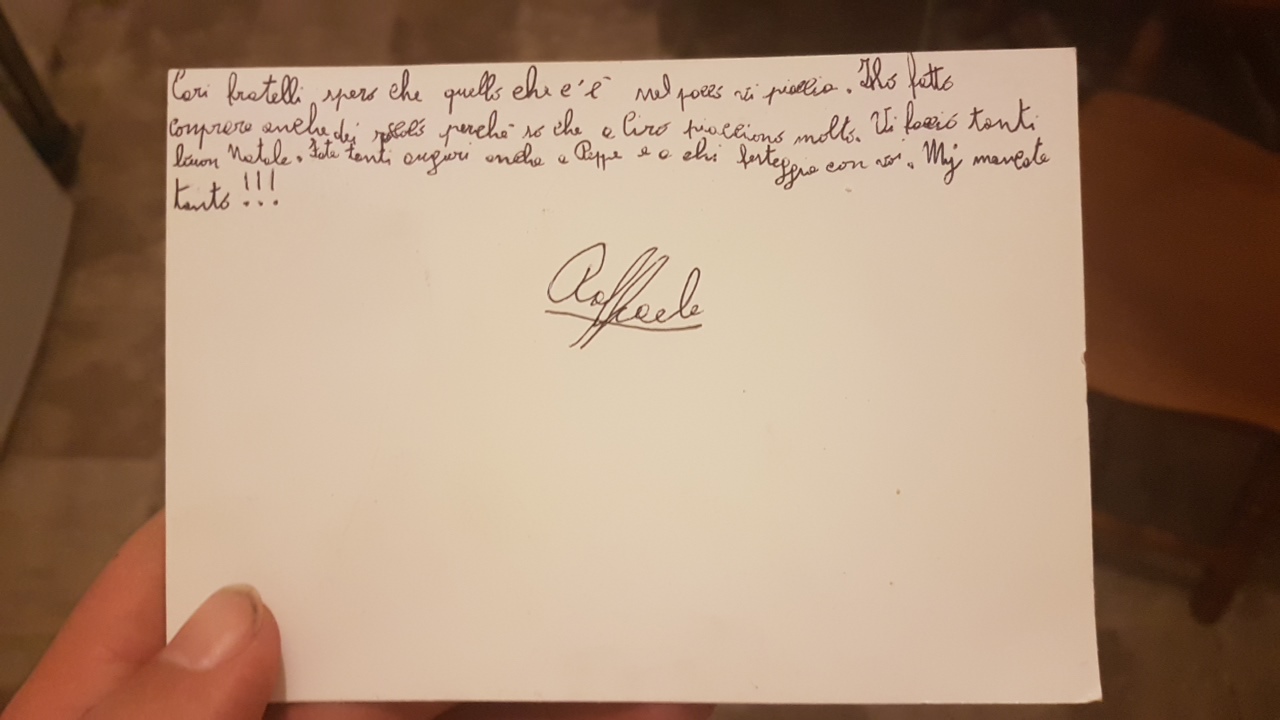 Cari fratelli spero che quello che c'è nel pacco vi piaccia. Ho fatto
comprare anche dei perché so che a Ciro piacciono molto. Vi faccio tanti
buon Natale. Fate tanti auguri anche a Peppe e a chi festeggia con voi. Mi mancate
tanto !!!
Raffaele